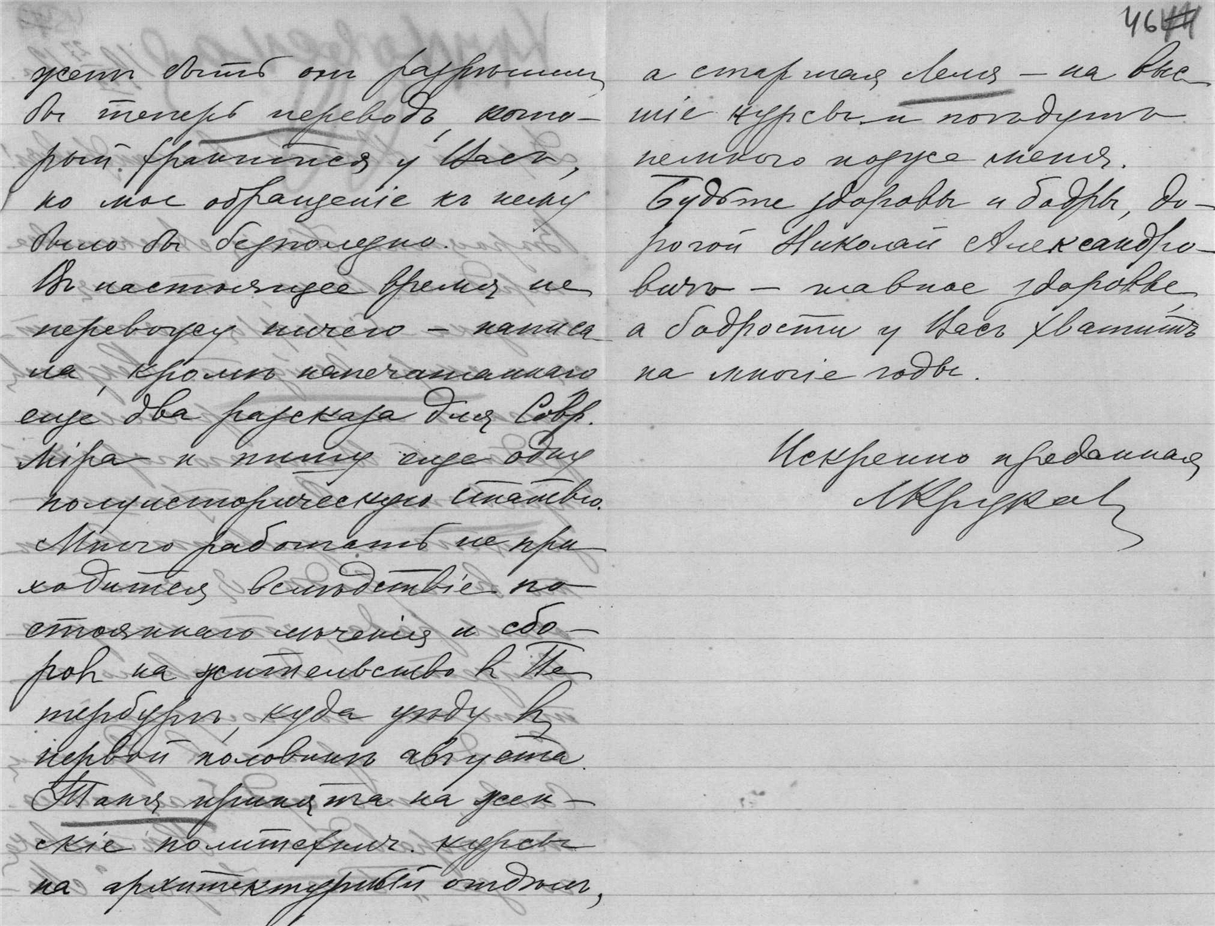 46
жетъ быть онъ разрѣшилъ
бы теперь переводъ, кото-
рый хранится у Васъ,
но мое обращеніе къ нему
было бы безполезно.
Въ настоящее время не
перевожу ничего — написа-
ла, кромѣ напечатаннаго
еще два разсказа для Совр.
Міра и пишу еще одну
полуисторическую статью.
Много работать не при
ходится вслѣдствіе по
стояннаго лѣченія и сбо-
ровъ на жительство въ Пе
тербургъ, куда уѣду въ
первой половинѣ августа.
Таня принята на жен-
скіе политехнич. курсы
на архитектурный отдѣлъ,
а старшая Леля — на выс
шіе курсы и поѣдутъ
немного позже меня.
Будьте здоровы и бодры, до-
рогой Николай Александро-
вичъ — главное здоровье,
а бодрости у Васъ хватитъ
на многіе годы.
Искренно преданная